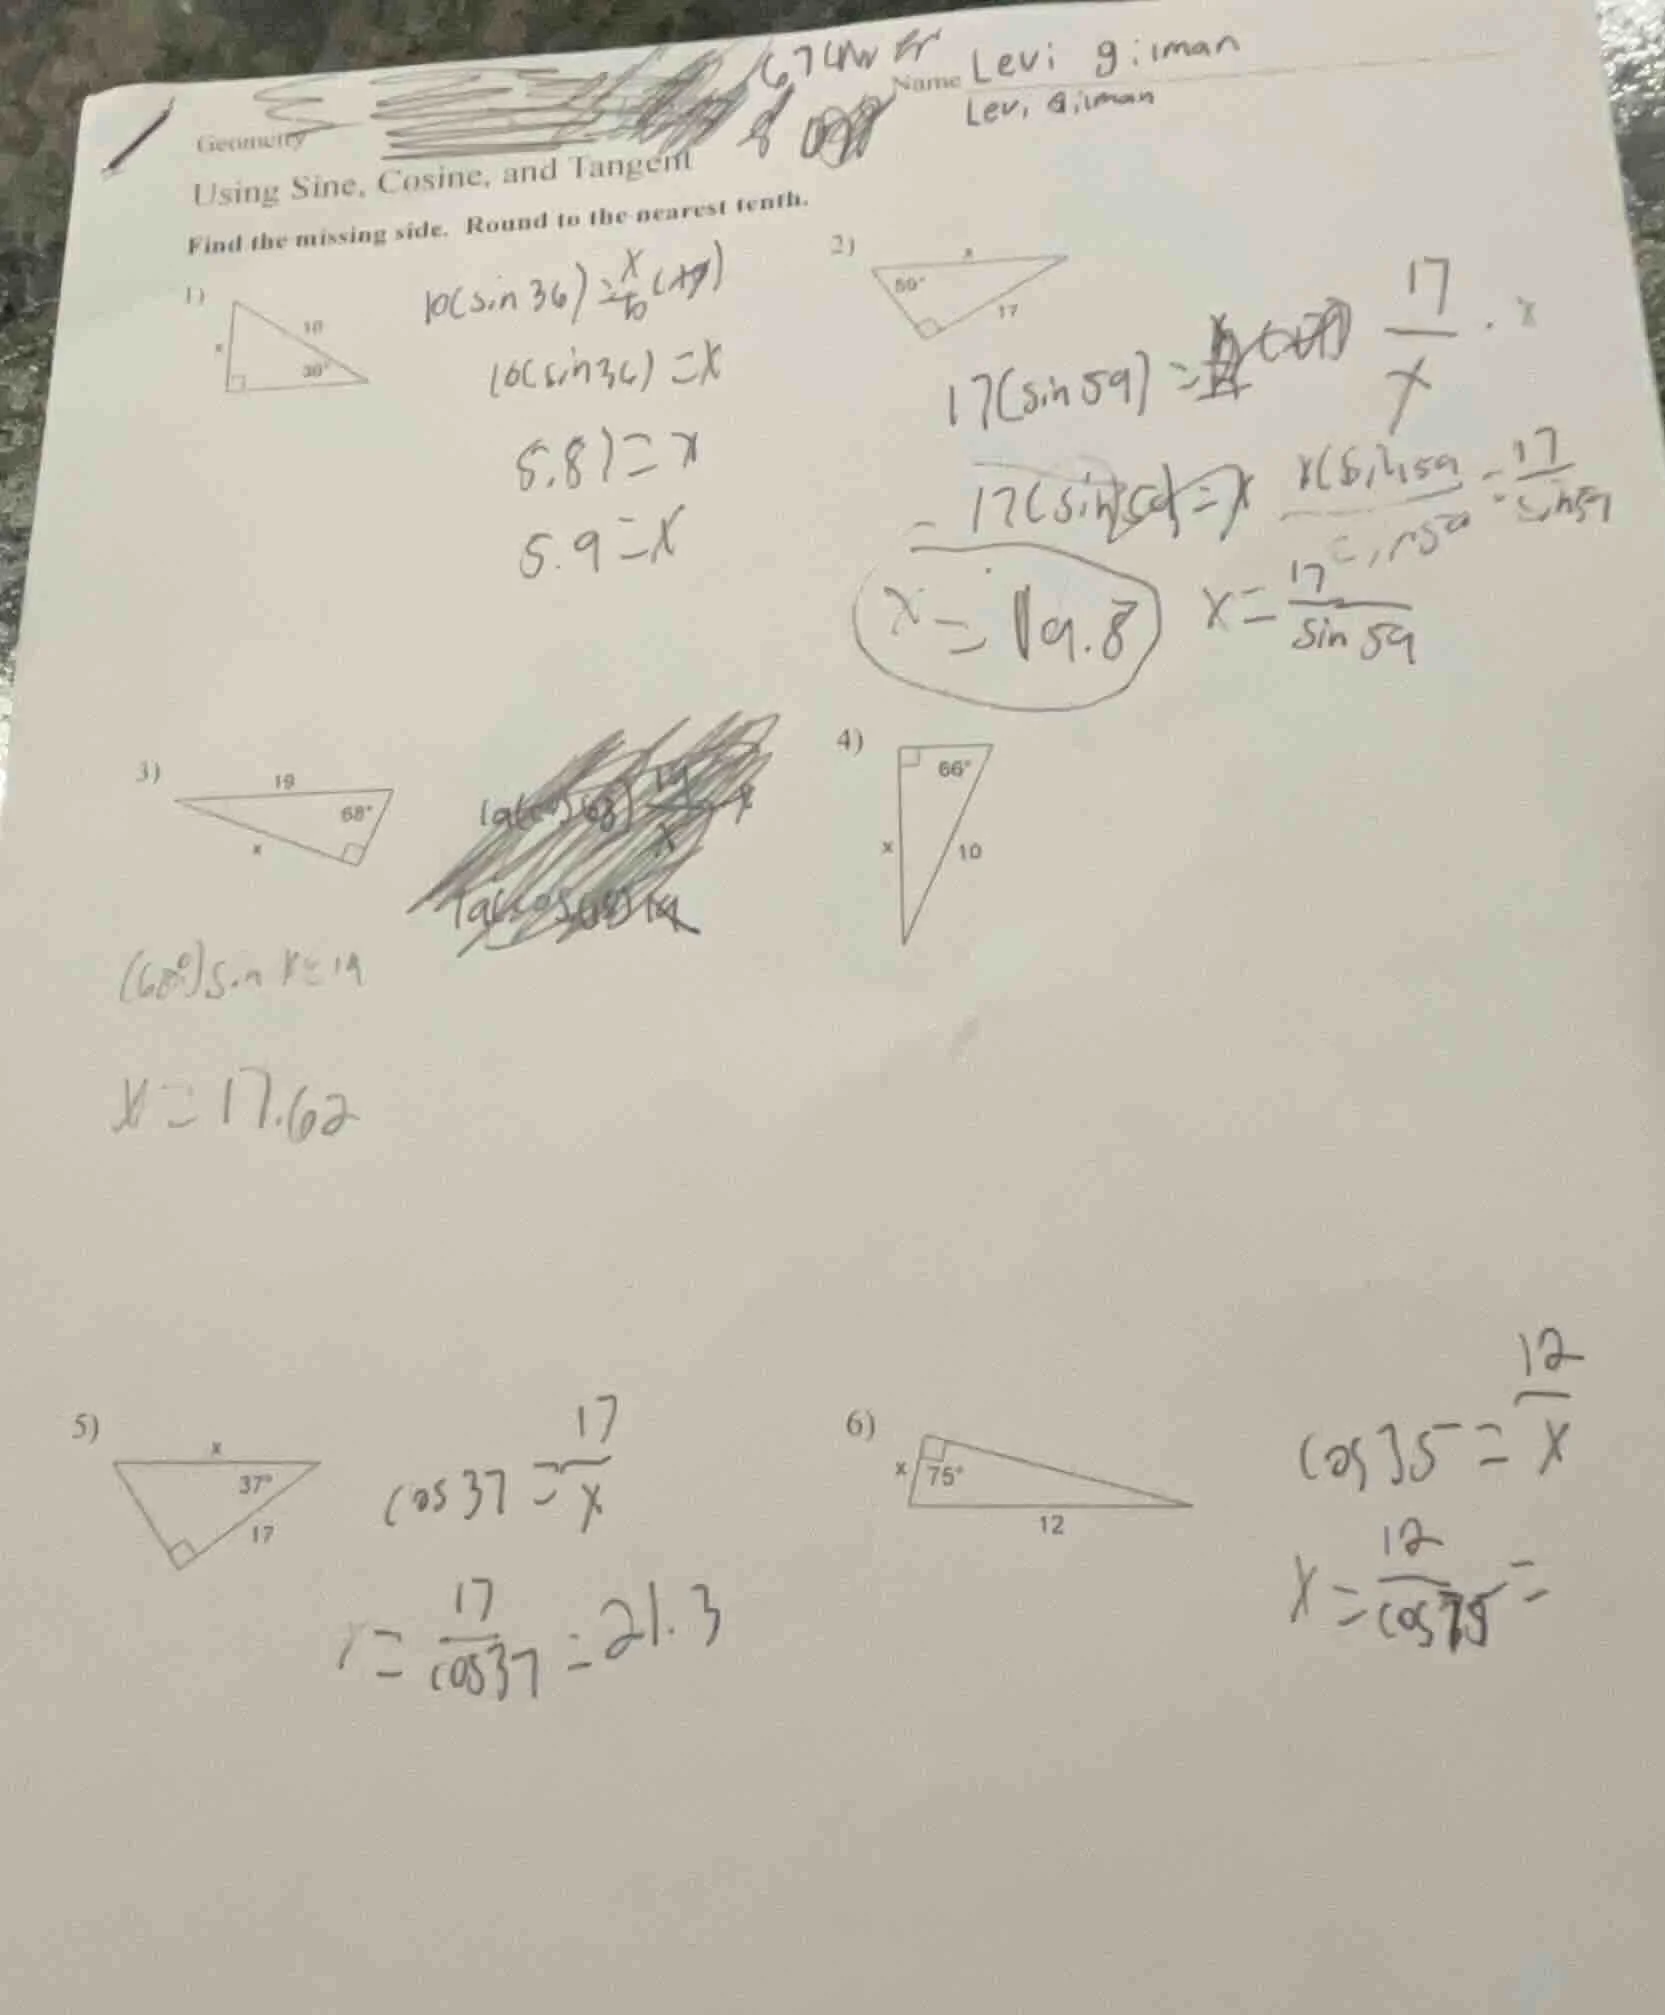 Geometry
Name Levi gilman
Levi Gilman
Using Sine, Cosine, and Tangent
Find the missing side. Round to the nearest tenth.
1)
x
10
36°
10(sin 36) = x/10
10(sin36) = x
5.87 = x
5.9 = x
2)
x
59°
17
17(sin 59) = 17/x · x
17(sin59) = x
x(sin59)/sin59 = 17/sin59
x = 17/sin 59
x = 19.8
3)
19
68°
x
(68°) sin x = 19
x = 17.62
4)
66°
x
10
5)
x
37°
17
cos 37 = 17/x
x = 17/cos37 = 21.3
6)
x
75°
12
cos 75 = 12/x
x = 12/cos75 =